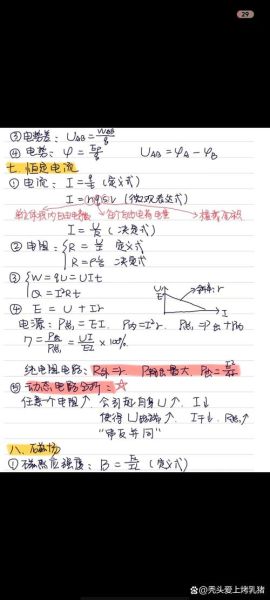 29
③ 电势差: U_AB = W_AB/q
④ 电势: φ = Ep/q  U_AB = φ_A - φ_B
七. 恒定电流
① 电流: I = q/t (定义式)
I = nqSv (微观表达式)
单位体积内自由电荷数 每个自由电荷电量 横截面积
I = U/R (决定式)
② 电阻: { R = U/I 定义式
R = ρ l/S 决定式
③ { W = qU = UIt
Q = I²Rt
④ E = U + Ir
U E 斜率: r I
电源: P总 = EI. P内 = I²r. P总 = P出 + P内
η = P出/P总 = UI/EI × 100%
纯电阻电路: R外 = r P输出最大, P出 = E²/4r
⑤ 动态电路分析: ☆
任意一个电阻↑, 会引起自身U↑, I↓
使得U路端↑, I干↓, R总↑
"串反并同"
八. 磁场
① 磁感应强度: B = F/IL (定义式)
@秃头爱上烤乳猪